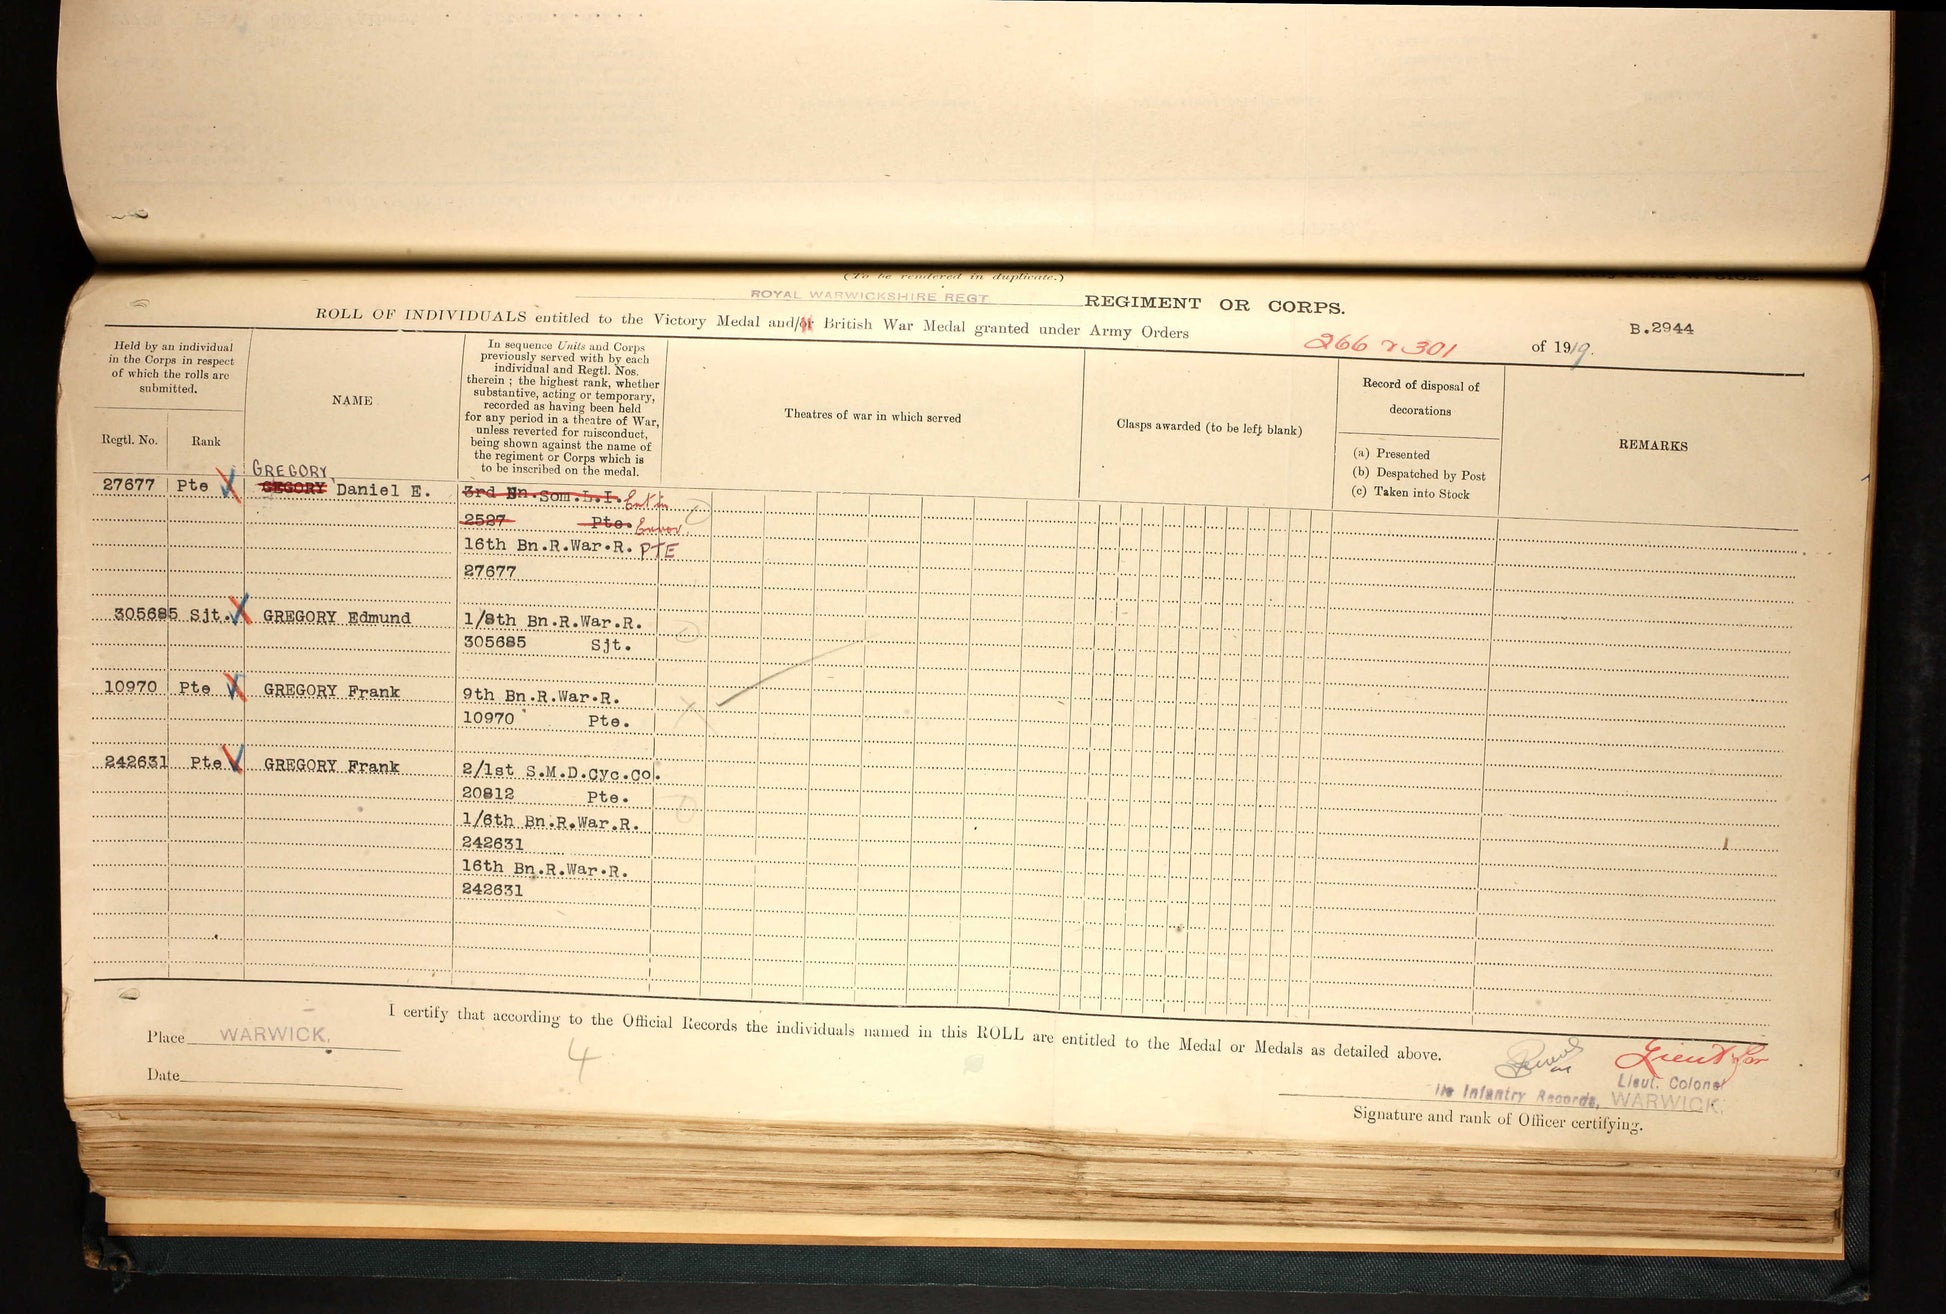 (To be rendered in duplicate.)
ROYAL WARWICKSHIRE REGT REGIMENT OR CORPS.
ROLL OF INDIVIDUALS entitled to the Victory Medal and/or British War Medal granted under Army Orders 266 & 301 of 1919.
B.2944
Held by an individual
in the Corps in respect
of which the rolls are
submitted.
Regtl. No.
Rank
NAME
In sequence Units and Corps
previously served with by each
individual and Regtl. Nos.
therein ; the highest rank, whether
substantive, acting or temporary,
recorded as having been held
for any period in a theatre of War,
unless reverted for misconduct,
being shown against the name of
the regiment or Corps which is
to be inscribed on the medal.
Theatres of war in which served
Clasps awarded (to be left blank)
Record of disposal of
decorations
(a) Presented
(b) Despatched by Post
(c) Taken into Stock
REMARKS
GREGORY
27677 Pte GEGORY Daniel E. 3rd Bn.Som.L.I. Ent in
2527 Pte. Error
16th Bn.R.War.R. PTE
27677
305685 Sjt. GREGORY Edmund 1/8th Bn.R.War.R.
305685 Sjt.
10970 Pte GREGORY Frank 9th Bn.R.War.R.
10970 Pte.
242631 Pte GREGORY Frank 2/1st S.M.D.Cyc.Co.
20812 Pte.
1/6th Bn.R.War.R.
242631
16th Bn.R.War.R.
242631
I certify that according to the Official Records the individuals named in this ROLL are entitled to the Medal or Medals as detailed above.
Place WARWICK.
Date
4
Lieut for
Lieut. Colonel
i/c Infantry Records, WARWICK.
Signature and rank of Officer certifying.